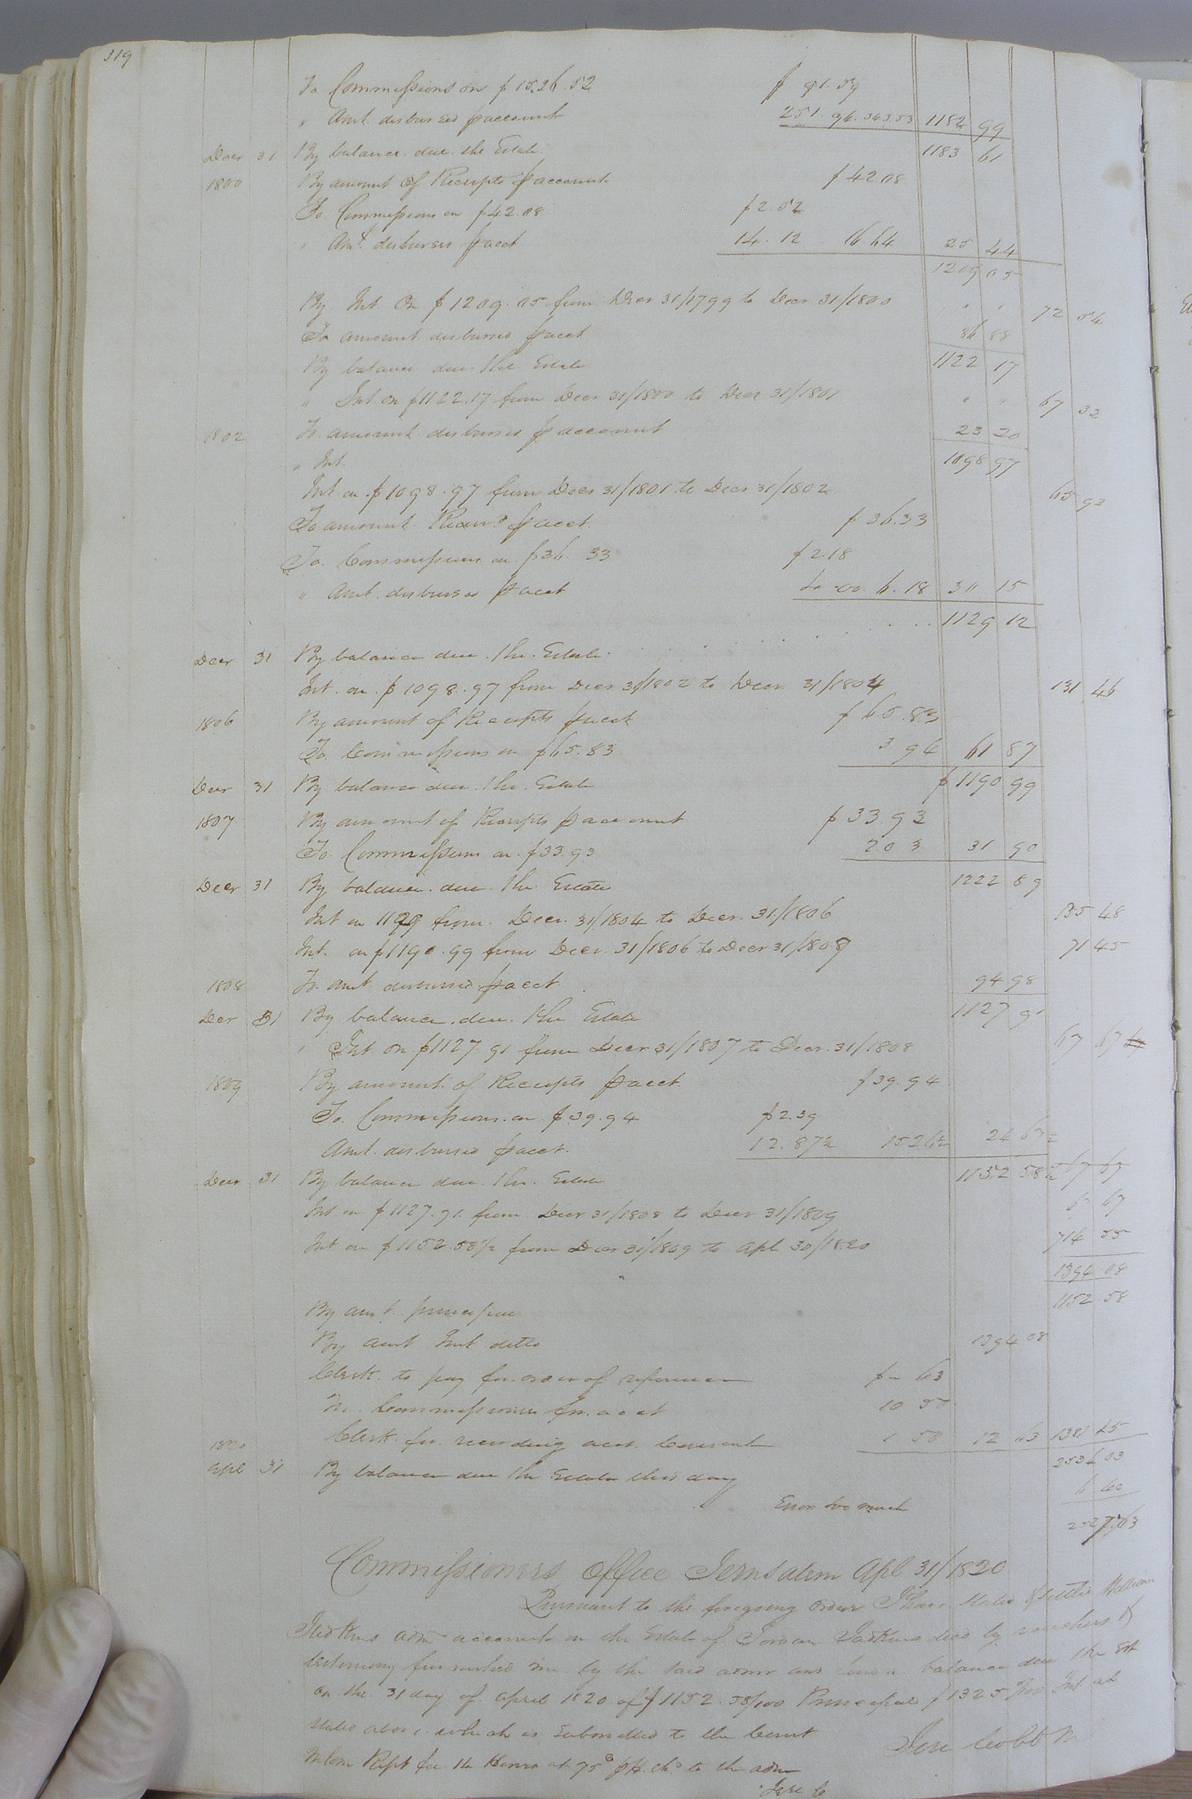 319
To Commissions on $1526.52 $ 91.59
" Amt. disbursed p account 251.96. 343.53 1182 99
Decr 31 By balance due the Estate 1183 61
1800 By amount of Receipts p account $42.08
To Commissions on $42.08 $2.52
" Amt. disbursed p acct 14.12 16 64 25 44
1209 05
By Int. On $1209.05 from Decr 31/1799 to Decr 31/1800 " " 72 54
To amount disbursed p acct 86 88
By balance due the Estate 1122 17
" Int. on $1122.17 from Decr 31/1800 to Decr 31/1801 " " 67 32
1802 To amount disbursed p account 23 20
" Int. 1098 97
Int. on $1098.97 from Decr 31/1801 to Decr 31/1802 65 93
To amount Recd p acct. $36.33
To Commissions on $36.33 $2.18
" Amt. disbursed p acct 4 00 6.18 30 15
1129 12
Decr 31 By balance due the Estate
Int. on $1098.97 from Decr 31/1802 to Decr 31/1804 131 46
1806 By amount of Receipts p acct $65.83
To Commissions on $65.83 3 96 61 87
Decr 31 By balance due the Estate $1190 99
1807 By amount of Receipts p account $33.93
To Commissions on $33.93 2 03 31 90
Decr 31 By balance due the Estate 1222 89
Int on 1129 from Decr. 31/1804 to Decr. 31/1806 135 48
Int. on $1190.99 from Decr. 31/1806 to Decr 31/1807 71 45
1808 To amt disbursed p acct 94 98
Decr 31 By balance due the Estate 1127 91
" Int on $1127.91 from Decr 31/1807 to Decr. 31/1808 67 67
1809 By amount of Receipts p acct $39.94
To Commissions on $39.94 $2.39
Amt. disbursed p acct. 12.87½ 15 26½ 24 67½
Decr 31 By balance due the Estate 1152 58½ 67 67
Int on $1127.91 from Decr 31/1808 to Decr 31/1809 67
Int on $1152.58½ from Decr 31/1809 to Apl 30/1820 714 55
1394 08
By amt. principal 1152 58
By amt Int ditto 1394 08
Clerk to pay for order of reference $- 63
To Commissioner for acct 10 50
Clerk for recording acct. Current 1 50 12 63
1820
Apl 31 By balance due the Estate this day
Error too much 6 60
Commissioners Office Jerusalem Apl 31/1820
Pursuant to the foregoing order I have Stated & Settled William
adms account on the Estate of decd by vouchers &
testimony furnished me by the said admr and find a balance due the Est
on the 31 day of April 1820 of $1152.58/100 Principal $1325 Int as
stated above which is Submitted to the Court
for 14 Hours at 75 c p H. chd to the adm
Jere Cobb
Jere C